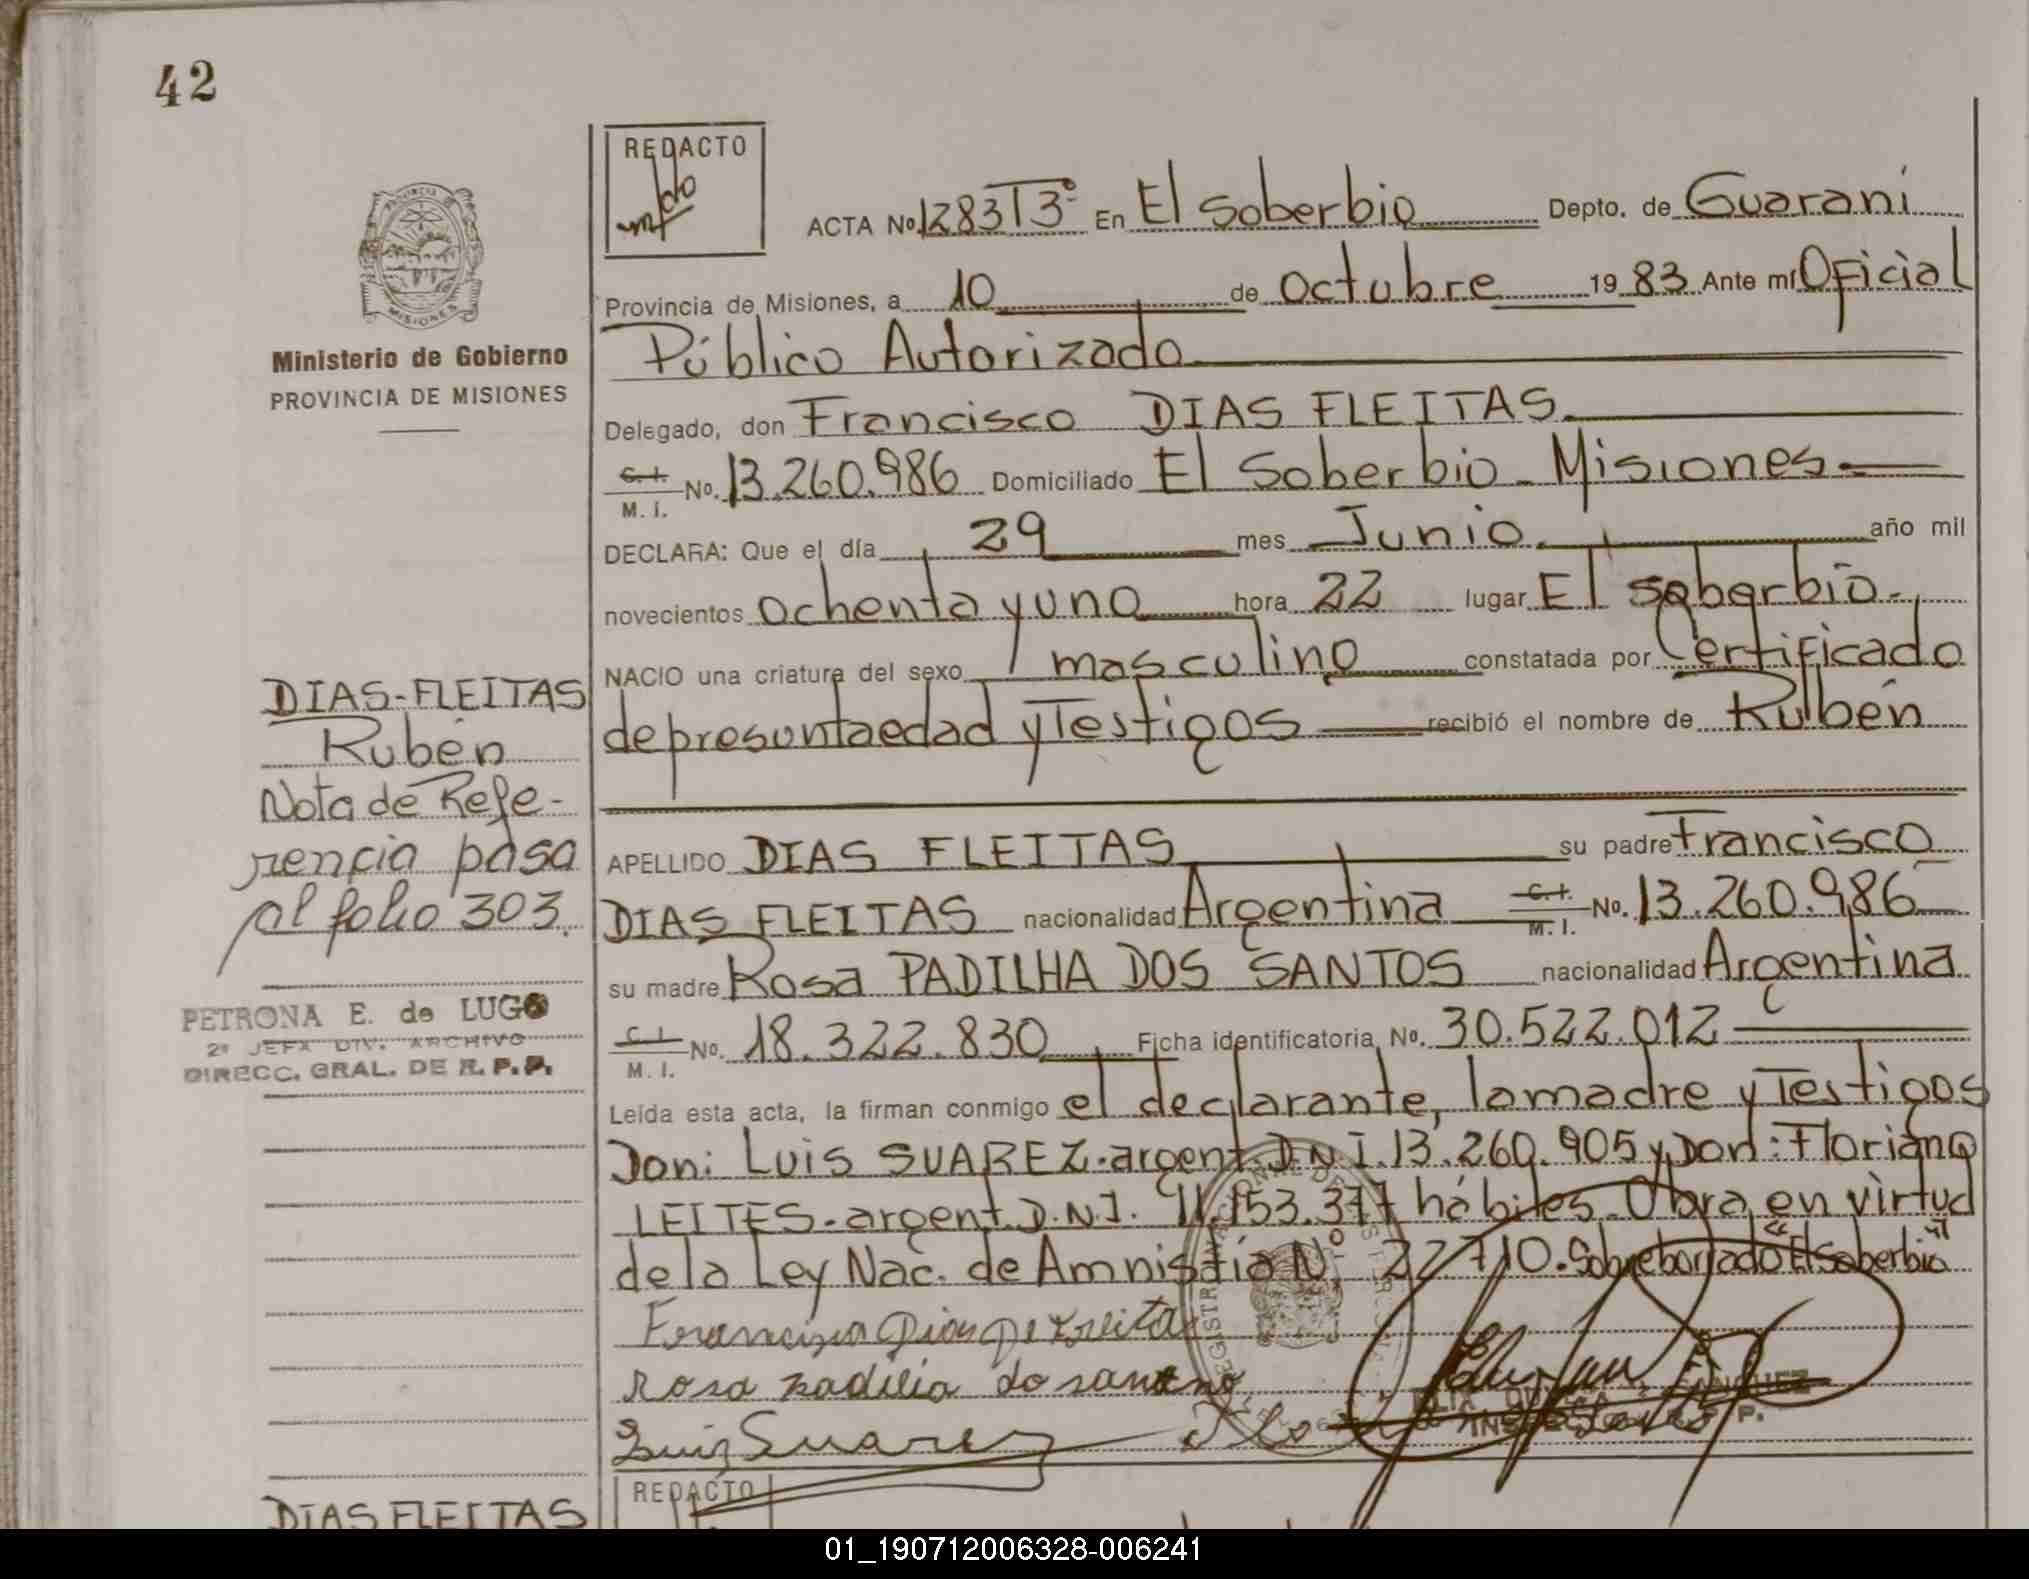 42
REDACTO
PROVINCIA DE MISIONES
ACTA No. 1283 T3º En El Soberbio Depto. de Guaraní
Provincia de Misiones, a 10 de Octubre 1983 Ante mí Oficial
Público Autorizado
Delegado, don Francisco DIAS FLEITAS.
C. I. M. I. No. 13.260.986 Domiciliado El Soberbio - Misiones.
DECLARA: Que el día 29 mes Junio. año mil
novecientos ochenta y uno hora 22 lugar El Soberbio.
NACIO una criatura del sexo masculino constatada por Certificado
de presuntaedad y Testigos recibió el nombre de Rubén
APELLIDO DIAS FLEITAS su padre Francisco
DIAS FLEITAS nacionalidad Argentina C. I. M. I. No. 13.260.986
su madre Rosa PADILHA DOS SANTOS nacionalidad Argentina
C. I. M. I. No. 18.322.830 Ficha identificatoria No. 30.522.012
Leída esta acta, la firman conmigo el declarante, la madre y Testigos
Don: Luis SUAREZ-argent. D.N.I. 13.260.905 y Don: Floriano
LEITES-argent. D.N.I. 11.153.377 hábiles. Obra en virtud
de la Ley Nac. de Amnistía Nº 22.710. Sobreborrado "El Soberbio"
rosa padilia do
Luis Suarez
Ministerio de Gobierno
PROVINCIA DE MISIONES
DIAS-FLEITAS
Rubén
Nota de Refe-
rencia pasa
al folio 303.
PETRONA E. de LUGO
2ª JEFA DIV. ARCHIVO
DIRECC. GRAL. DE R.P.P.
REDACTO
DIAS FLEITAS
01_190712006328-006241